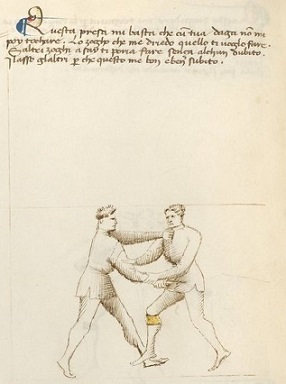 Questa presa mi basta che cum tua daga non me
poy tochare. Lo zogho che me driedo quello ti voglio fare.
E altri zoghi assay ti poria fare senza alchun dubito.
Lasso gl'altri per che questo me bon e ben subito.